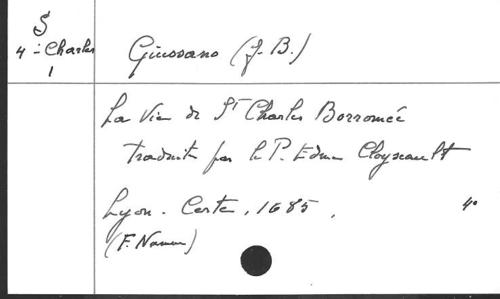 S
4 - Charles
1
Giussano (J. B.)
La Vie de St Charles Borromée
traduite par le P. Edme Cloyseault
Lyon. Certe, 1685. 4°
(F. Namur)